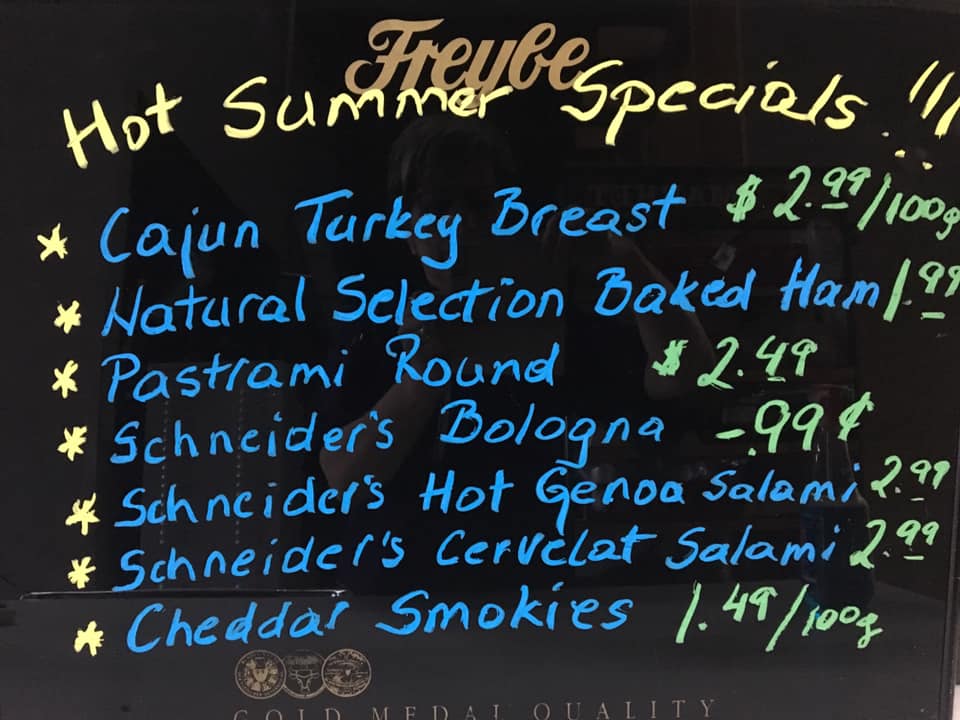 Freybe
Hot Summer Specials!!!
* Cajun Turkey Breast $2.99/100g
* Natural Selection Baked Ham 1.99
* Pastrami Round $2.49
* Schneider's Bologna -.99¢
* Schneider's Hot Genoa Salami 2.99
* Schneider's Cervelat Salami 2.99
* Cheddar Smokies 1.49/100g
GOLD MEDAL QUALITY